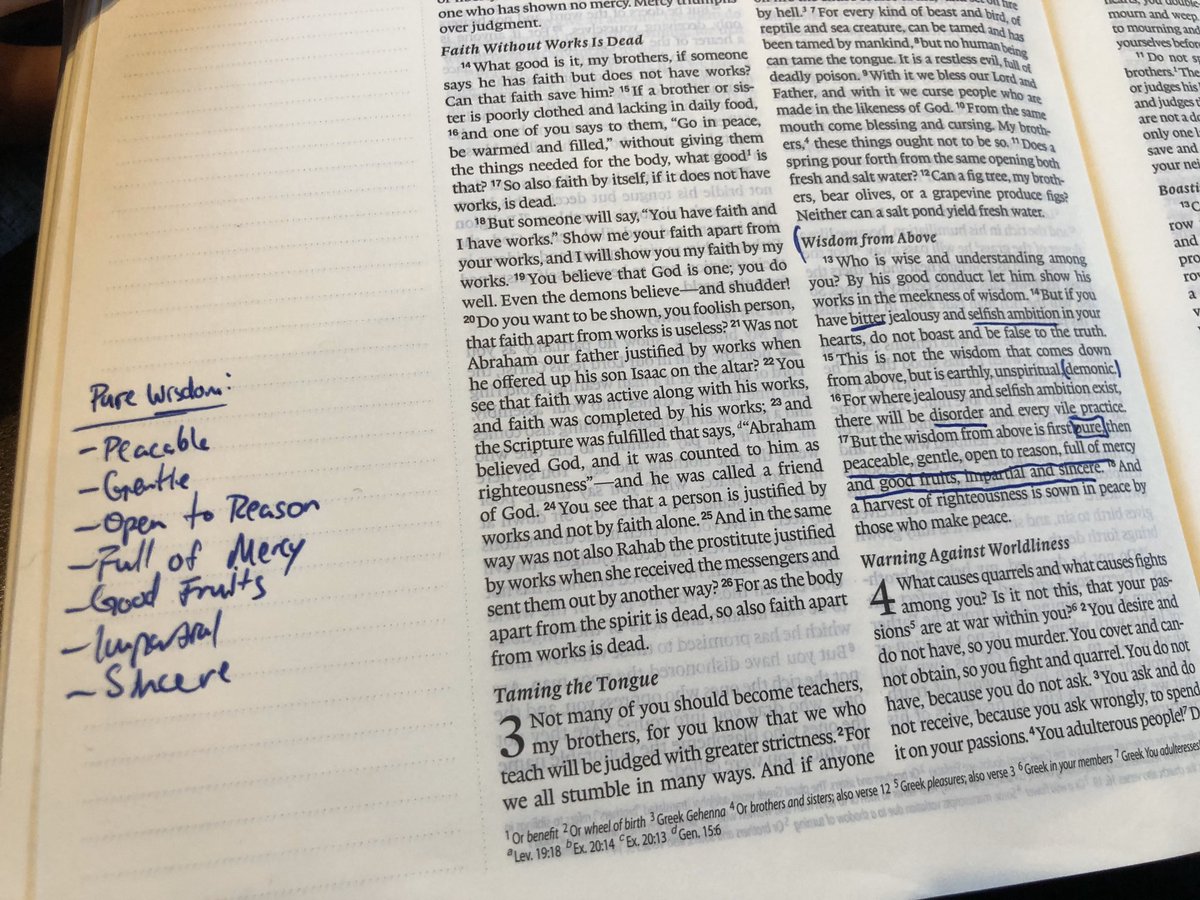 one who has shown no mercy. Mercy triumphs
over judgment.
Faith Without Works Is Dead
14 What good is it, my brothers, if someone
says he has faith but does not have works?
Can that faith save him? 15 If a brother or sis-
ter is poorly clothed and lacking in daily food,
16 and one of you says to them, “Go in peace,
be warmed and filled,” without giving them
the things needed for the body, what good1 is
that? 17 So also faith by itself, if it does not have
works, is dead.
18 But someone will say, “You have faith and
I have works.” Show me your faith apart from
your works, and I will show you my faith by my
works. 19 You believe that God is one; you do
well. Even the demons believe—and shudder!
20 Do you want to be shown, you foolish person,
that faith apart from works is useless? 21 Was not
Abraham our father justified by works when
he offered up his son Isaac on the altar? 22 You
see that faith was active along with his works,
and faith was completed by his works; 23 and
the Scripture was fulfilled that says, d“Abraham
believed God, and it was counted to him as
righteousness”—and he was called a friend
of God. 24 You see that a person is justified by
works and not by faith alone. 25 And in the same
way was not also Rahab the prostitute justified
by works when she received the messengers and
sent them out by another way? 26 For as the body
apart from the spirit is dead, so also faith apart
from works is dead.
Taming the Tongue
3 Not many of you should become teachers,
my brothers, for you know that we who
teach will be judged with greater strictness. 2 For
we all stumble in many ways. And if anyone
by hell.3 7 For every kind of beast and bird, of
reptile and sea creature, can be tamed and has
been tamed by mankind, 8 but no human being
can tame the tongue. It is a restless evil, full of
deadly poison. 9 With it we bless our Lord and
Father, and with it we curse people who are
made in the likeness of God. 10 From the same
mouth come blessing and cursing. My broth-
ers,4 these things ought not to be so. 11 Does a
spring pour forth from the same opening both
fresh and salt water? 12 Can a fig tree, my broth-
ers, bear olives, or a grapevine produce figs?
Neither can a salt pond yield fresh water.
Wisdom from Above
13 Who is wise and understanding among
you? By his good conduct let him show his
works in the meekness of wisdom. 14 But if you
have bitter jealousy and selfish ambition in your
hearts, do not boast and be false to the truth.
15 This is not the wisdom that comes down
from above, but is earthly, unspiritual, demonic.
16 For where jealousy and selfish ambition exist,
there will be disorder and every vile practice.
17 But the wisdom from above is first pure, then
peaceable, gentle, open to reason, full of mercy
and good fruits, impartial and sincere. 18 And
a harvest of righteousness is sown in peace by
those who make peace.
Warning Against Worldliness
4 What causes quarrels and what causes fights
among you? Is it not this, that your pas-
sions5 are at war within you?6 2 You desire and
do not have, so you murder. You covet and can-
not obtain, so you fight and quarrel. You do not
have, because you do not ask. 3 You ask and do
not receive, because you ask wrongly, to spend
it on your passions. 4 You adulterous people!7 D
1 Or benefit 2 Or wheel of birth 3 Greek Gehenna 4 Or brothers and sisters; also verse 12 5 Greek pleasures; also verse 3 6 Greek in your members 7 Greek You adulteresses!
a Lev. 19:18 b Ex. 20:14 c Ex. 20:13 d Gen. 15:6
Pure Wisdom:
- Peaceable
- Gentle
- Open to Reason
- Full of Mercy
- Good Fruits
- Impartial
- Sincere
mourn and weep
to mourning and
yourselves befo
11 Do not sp
brothers.1 The
or judges his
and judges t
are not a do
only one l
save and
your nei
Boasti
13 C
row
and
pro
ro
a